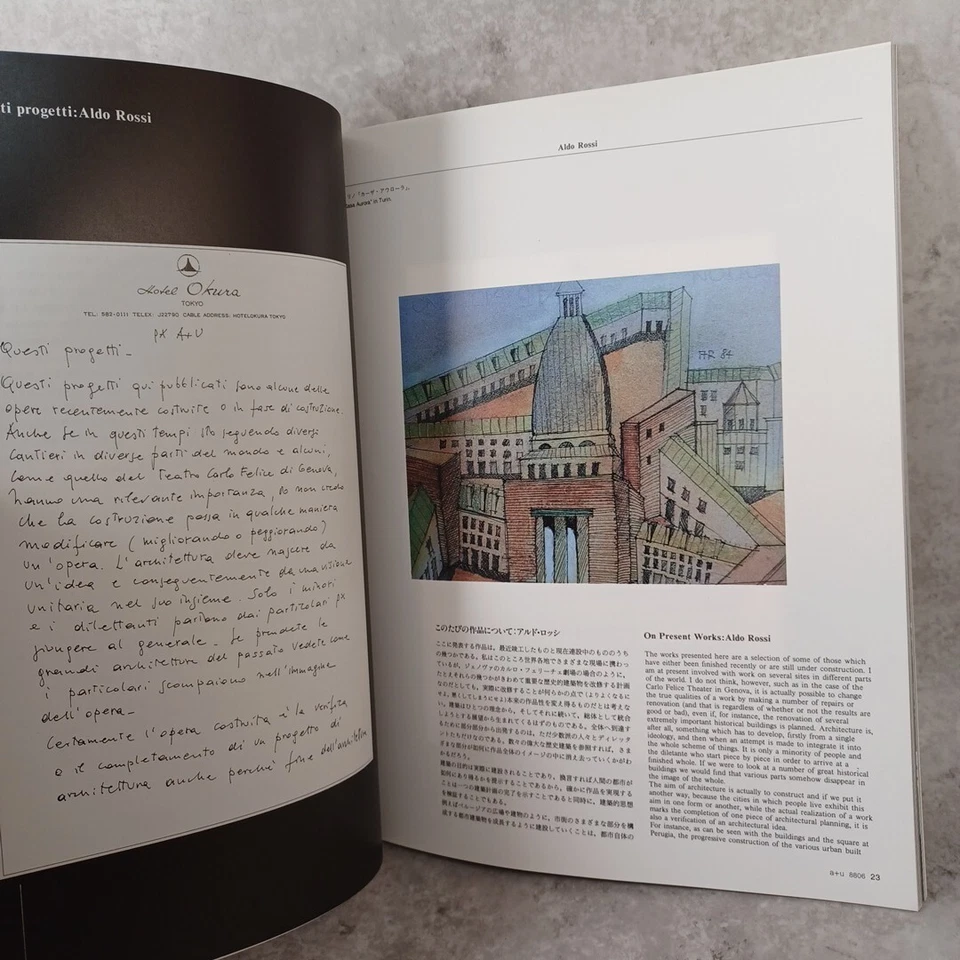 ti progetti:Aldo Rossi
Hotel Okura
TOKYO
TEL: 582-0111 TELEX: J22790 CABLE ADDRESS: HOTELOKURA TOKYO
px A+U
Questi progetti-
Questi progetti qui pubblicati sono alcune delle
opere recentemente costruite o in fase di costruzione.
Anche se in questi tempi sto seguendo diversi
cantieri in diverse parti del mondo e alcuni,
come quello del Teatro Carlo Felice di Genova,
hanno una rilevante importanza, io non credo
che la costruzione possa in qualche maniera
modificare (migliorando o peggiorando)
un'opera. L'architettura deve nascere da
un'idea e conseguentemente da una visione
unitaria nel suo insieme. Solo i minori
e i dilettanti partono dai particolari px
giungere al generale. Se prendete le
grandi architetture del passato vedete come
i particolari scompaiono nell'immagine
dell'opera-
Certamente l'opera costruita è la verifica
e il completamento di un progetto di
architettura anche perché fine dell'architettura
Aldo Rossi
リノ「カーザ・アウローラ」
"Casa Aurora" in Turin.
AR 84
このたびの作品について：アルド・ロッシ
ここに発表する作品は，最近竣工したものと現在建設中のもののうち
の幾つかである。私はこのところ世界各地でさまざまな現場に携わっ
ているが，ジェノヴァのカルロ・フェリーチェ劇場の場合のように，
たとえそれらの幾つかがきわめて重要な歴史的建築物を改修する計画
なのだとしても，実際に改修することが何らかの点で（よりよくなるに
せよ，悪くしてしまうにせよ）本来の作品性を変え得るものだとは考えな
い。建築はひとつの理念から，そしてそれに続いて，総体として統合
しようとする展望から生まれてくるはずのものである。全体へ到達す
るために部分部分から出発するのは，ただ少数派の人々とディレッタ
ントたちだけなのである。数々の偉大な歴史建築を参照すれば，さま
ざまな部分が如何に作品全体のイメージの中に消え去っていくかがわ
かるだろう。
建築の目的は実際に建設されることであり，換言すれば人間の都市が
如何にあり得るかを提示することであるから，確かに作品を実現する
ことは一つの建築計画の完了を示すことであると同時に，建築的思想
を検証することでもある。
例えばペルージアの広場や建物のように，市街のさまざまな部分を構
成する都市建築物を成長するように建設していくことは，都市自体の
On Present Works:Aldo Rossi
The works presented here are a selection of some of those which
have either been finished recently or are still under construction. I
am at present involved with work on several sites in different parts
of the world. I do not think, however, such as in the case of the
Carlo Felice Theater in Genova, it is actually possible to change
the true qualities of a work by making a number of repairs or
renovation (and that is regardless of whether or not the results are
good or bad), even if, for instance, the renovation of several
extremely important historical buildings is planned. Architecture is,
after all, something which has to develop, firstly from a single
ideology, and then when an attempt is made to integrate it into
the whole scheme of things. It is only a minority of people and
the diletante who start piece by piece in order to arrive at a
finished whole. If we were to look at a number of great historical
buildings we would find that various parts somehow disappear in
the image of the whole.
The aim of architecture is actually to construct and if we put it
another way, because the cities in which people live exhibit this
aim in one form or another, while the actual realization of a work
marks the completion of one piece of architectural planning, it is
also a verification of an architectural idea.
For instance, as can be seen with the buildings and the square at
Perugia, the progressive construction of the various urban built
a+u 8806 23